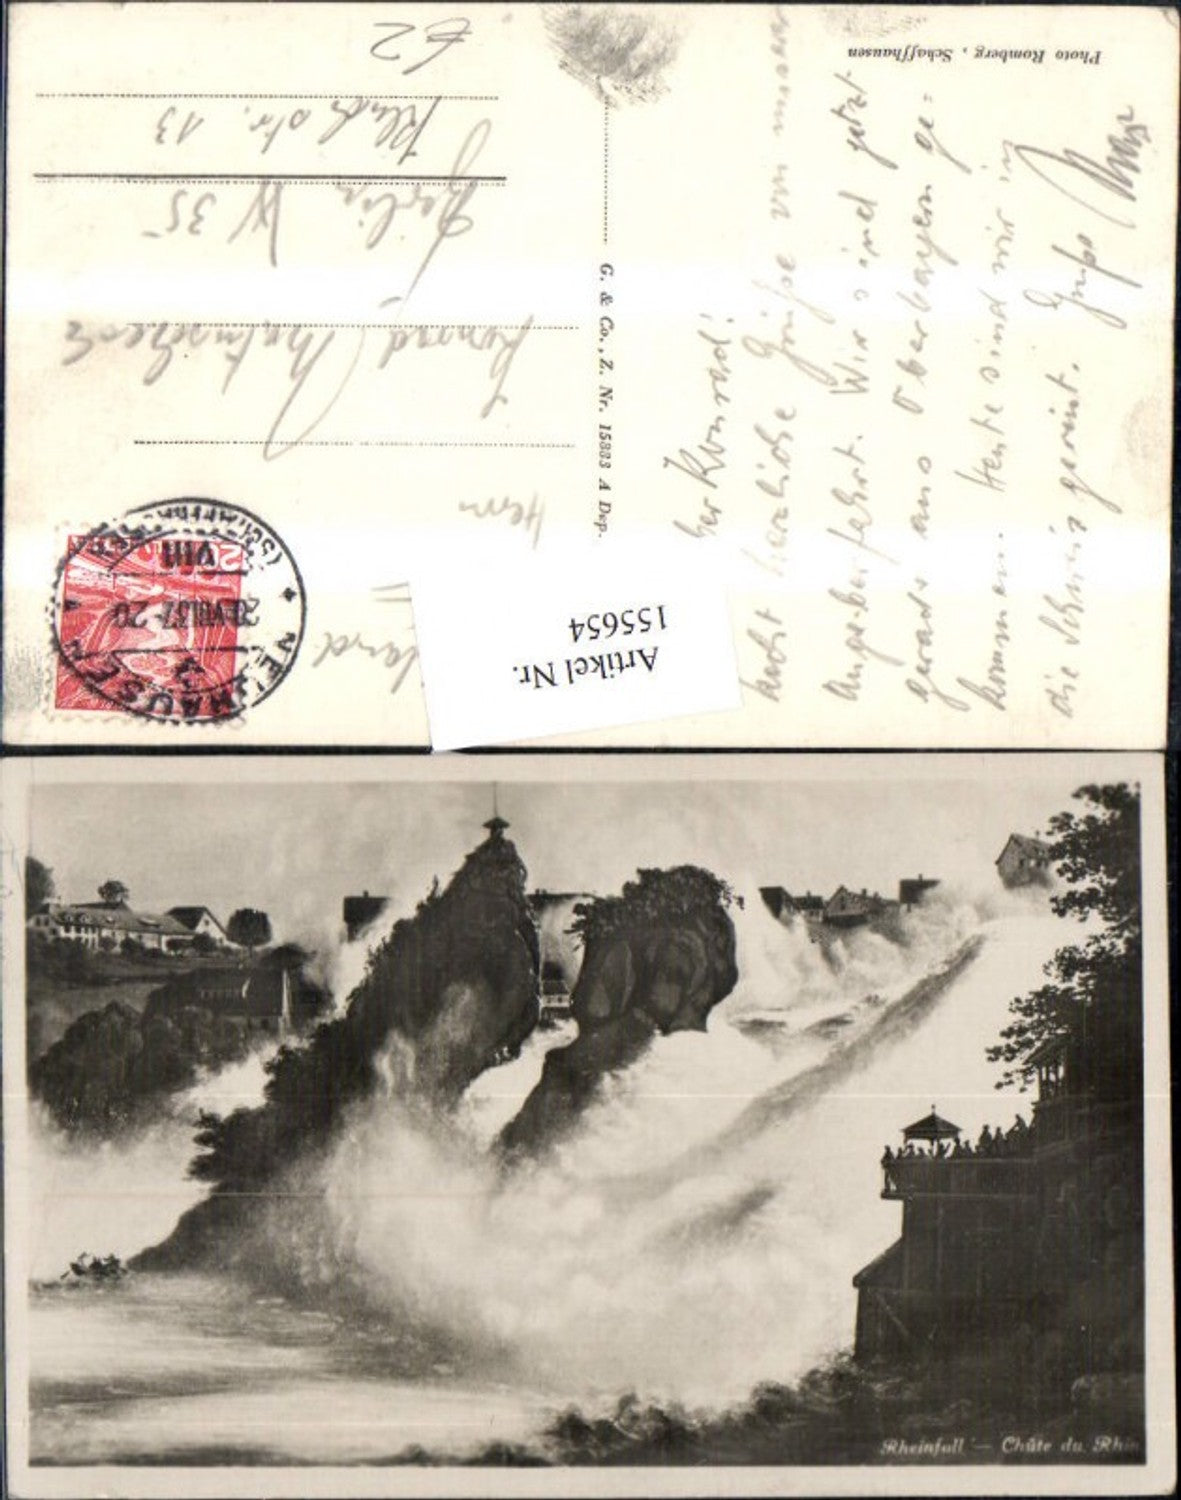 Photo Romberg, Schaffhausen
G. & Co., Z. Nr. 15883 A Dep.
Konrad!
herzliche Grüße von unserer
Wir sind jetzt
gerade aus Oberbayern ge-
kommen. Heute sind wir in
die Schweiz gereist.
Gruß
NEUHAUSEN
3
20.VIII.37-20
VIII
20
Herrn
Konrad
Berlin W 35
str. 13
€2
Artikel Nr.
155654
Rheinfall — Chûte du Rhin